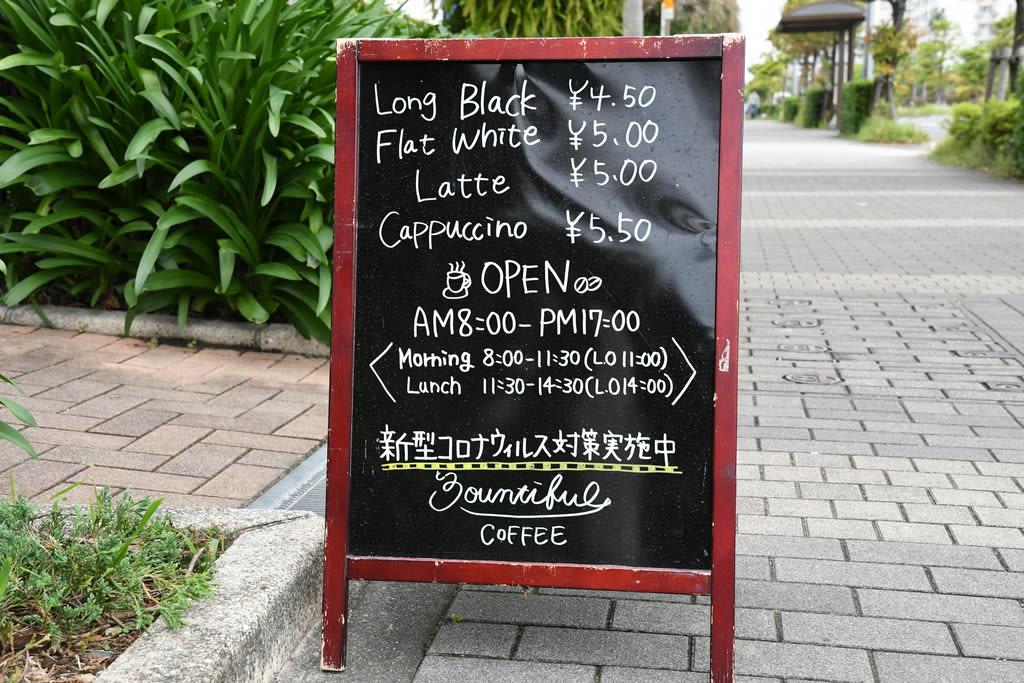 Long Black ¥4.50
Flat White ¥5.00
Latte ¥5.00
Cappuccino ¥5.50
OPEN
AM8:00-PM17:00
Morning 8:00-11:30(L.O 11:00)
Lunch 11:30-14:30(L.O 14:00)
新型コロナウィルス対策実施中
Bountiful
COFFEE